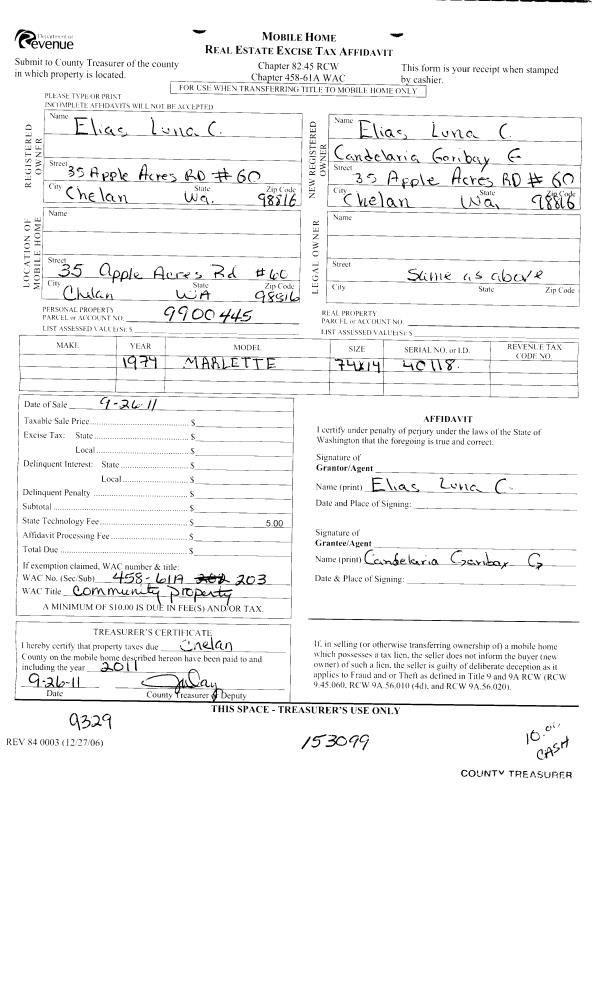 Department of
Revenue
MOBILE HOME
REAL ESTATE EXCISE TAX AFFIDAVIT
Submit to County Treasurer of the county
in which property is located.
Chapter 82.45 RCW
Chapter 458-61A WAC
This form is your receipt when stamped
by cashier.
FOR USE WHEN TRANSFERRING TITLE TO MOBILE HOME ONLY
PLEASE TYPE OR PRINT
INCOMPLETE AFFIDAVITS WILL NOT BE ACCEPTED
REGISTERED OWNER
Name Elias Luna C.
Street 35 Apple Acres RD # 60
City Chelan State Wa. Zip Code 98816
NEW REGISTERED OWNER
Name Elias Luna C.
Candelaria Garibay G
Street 35 Apple Acres RD # 60
City Chelan State Wa Zip Code 98816
LOCATION OF MOBILE HOME
Name
Street 35 Apple Acres Rd #60
City Chelan State WA Zip Code 98816
LEGAL OWNER
Name
Street Same as above
City State Zip Code
PERSONAL PROPERTY
PARCEL or ACCOUNT NO. 9900445
LIST ASSESSED VALUE(S): $
REAL PROPERTY
PARCEL or ACCOUNT NO.
LIST ASSESSED VALUE(S): $
MAKE YEAR MODEL SIZE SERIAL NO. or I.D. REVENUE TAX CODE NO.
1979 MARLETTE 74x14 40118.
Date of Sale 9-26-11
Taxable Sale Price $
Excise Tax: State $
Local $
Delinquent Interest: State $
Local $
Delinquent Penalty $
Subtotal $
State Technology Fee $ 5.00
Affidavit Processing Fee $
Total Due $
If exemption claimed, WAC number & title:
WAC No. (Sec/Sub) 458-61A 203
WAC Title Community property
A MINIMUM OF $10.00 IS DUE IN FEE(S) AND/OR TAX.
AFFIDAVIT
I certify under penalty of perjury under the laws of the State of
Washington that the foregoing is true and correct.
Signature of
Grantor/Agent
Name (print) Elias Luna C.
Date and Place of Signing:
Signature of
Grantee/Agent
Name (print) Candelaria Garibay G
Date & Place of Signing:
TREASURER'S CERTIFICATE
I hereby certify that property taxes due Chelan
County on the mobile home described hereon have been paid to and
including the year 2011
9-26-11
Date County Treasurer or Deputy
If, in selling (or otherwise transferring ownership of) a mobile home
which possesses a tax lien, the seller does not inform the buyer (new
owner) of such a lien, the seller is guilty of deliberate deception as it
applies to Fraud and or Theft as defined in Title 9 and 9A RCW (RCW
9.45.060, RCW 9A.56.010 (4d), and RCW 9A.56.020).
THIS SPACE - TREASURER'S USE ONLY
9329
REV 84 0003 (12/27/06)
153099
10.00
CASH
COUNTY TREASURER